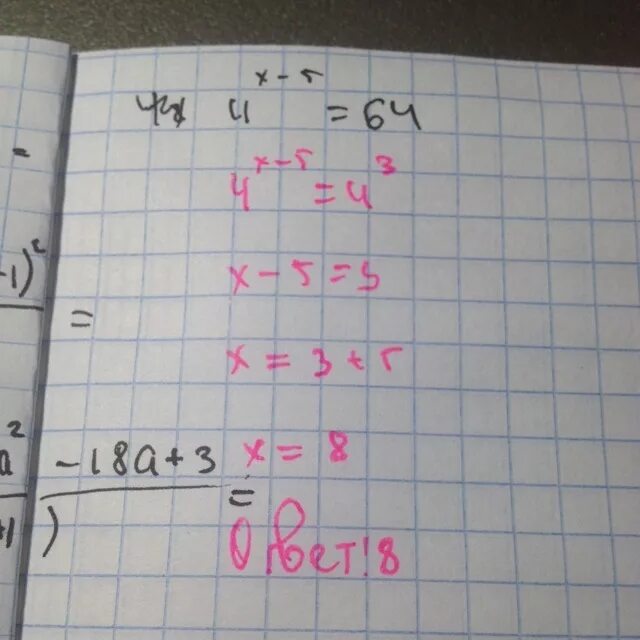 4^{x-5} = 64
4^{x-5} = 4^3
x - 5 = 3
x = 3 + 5
x = 8
Ответ! 8
=
-1)^2
=
a^2 -18a+3
=
)